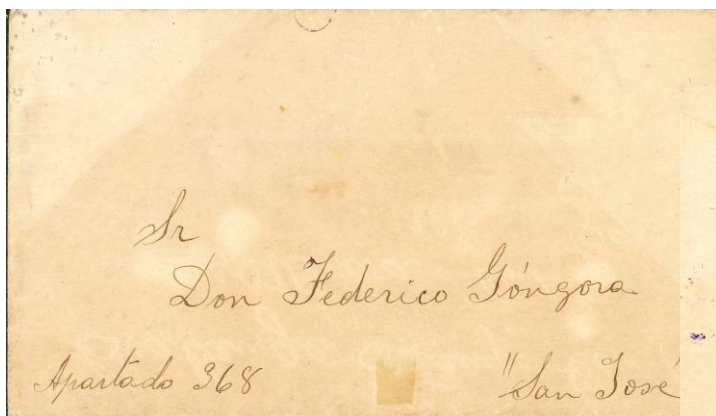 Sr
Don Federico Góngora
Apartado 368 "San José